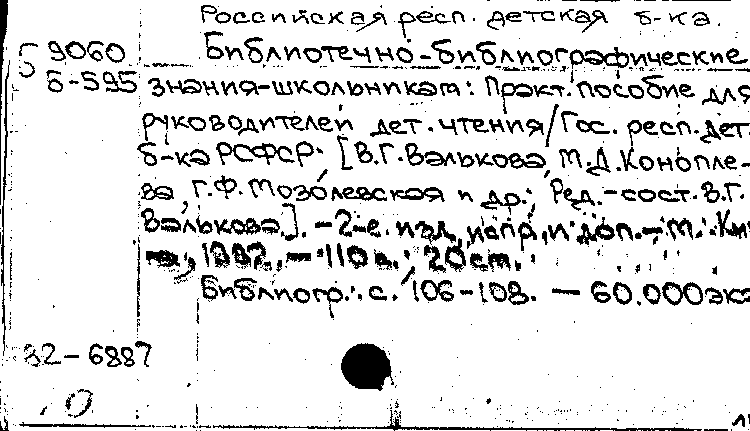 Российская респ. детская б-ка.
Б 9060 Библиотечно-библиографические
Б-595 знания-школьникам: Практ. пособие для
руководителей дет. чтения/Гос. респ. дет.
б-ка РСФСР; [В.Г. Валькова, М.Д. Конопле-
ва, Г.Ф. Мозолевская и др.; Ред.-сост. В.Г.
Валькова.]. -2-е. изд, испр, и доп.-М.: Кни-
га, 1982.-110 с.; 20 см.
Библиогр.: с. 106-108. - 60.000 экз
82-6887
0